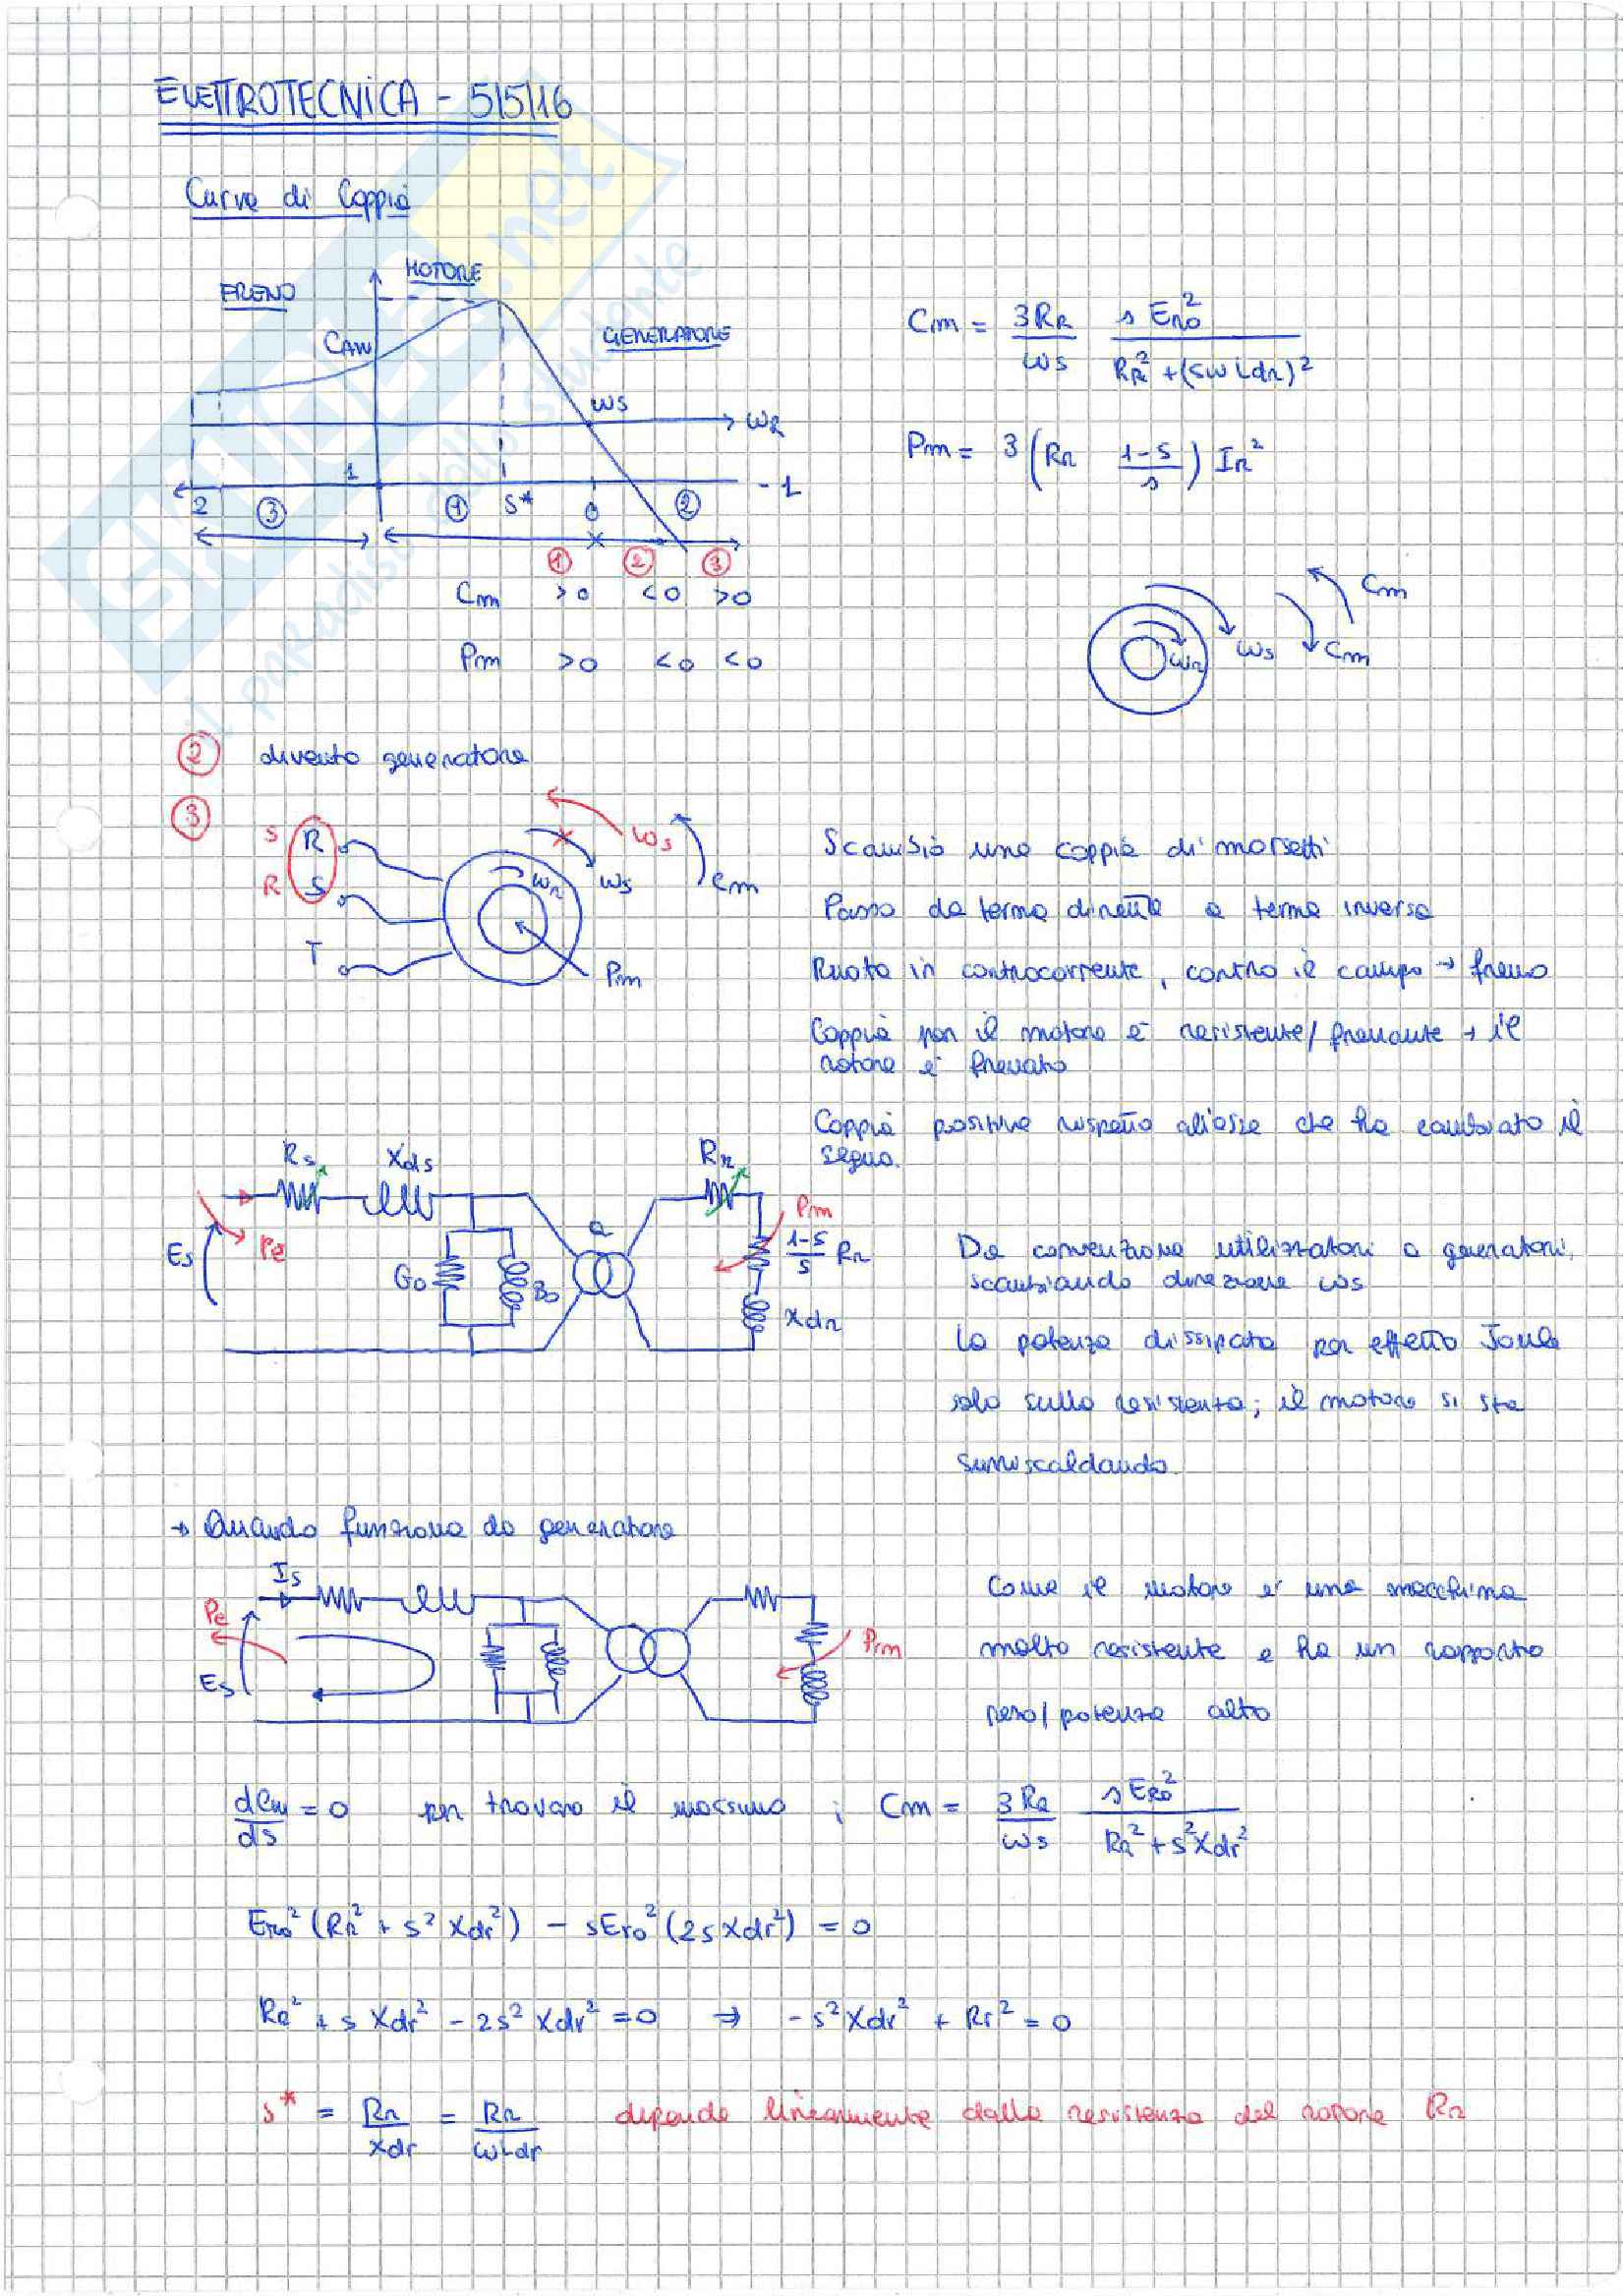 ELETTROTECNICA - 5/5/16
Curva di Coppia
FRENO
MOTORE
GENERATORE
CAW
ωS
ωR
1
-1
2 ③ ① S* 0 ②
① ② ③
Cm >0 <0 >0
Pm >0 <0 <0
Cm = 3RR/ωS · s Er0²/(RR² + (sωLdr)²)
Pm = 3 (Rr (1-s)/s) Ir²
ωr
ωs
Cm
Cm
② divento generatore
③
S R
R S
T
ωr
ωs
ωs
Cm
Pm
Scambio una coppia di morsetti
Passo da terna diretta a terna inversa
Ruota in controcorrente, contro il campo → freno
Coppia per il motore è resistente/frenante → il
rotore è frenato
Coppia positiva rispetto all'asse che ha cambiato il
segno.
Rs Xds
Rr
Es
Pe
G0
B0
a
Pm
(1-s)/s Rr
Xdr
Da convenzione utilizzatori a generatori,
scambiando direzione ωs
La potenza dissipata per effetto Joule
solo sulla resistenza; il motore si sta
surriscaldando.
→ Quando funziona da generatore
Is
Pe
Es
Pm
Come il motore è una macchina
molto resistente e ha un rapporto
peso/potenza alto
dCm/ds = 0 per trovare il massimo ; Cm = 3RR/ωs · s ER0²/(RR² + s²Xdr²)
Er0² (Rr² + s² Xdr²) - sEr0² (2s Xdr²) = 0
RR² + s Xdr² - 2s² Xdr² = 0 ⇒ -s² Xdr² + Rr² = 0
s* = Rr/Xdr = Rr/ωLdr dipende linearmente dalla resistenza del rotore Rr
SKUOLA.net
il paradiso dello studente